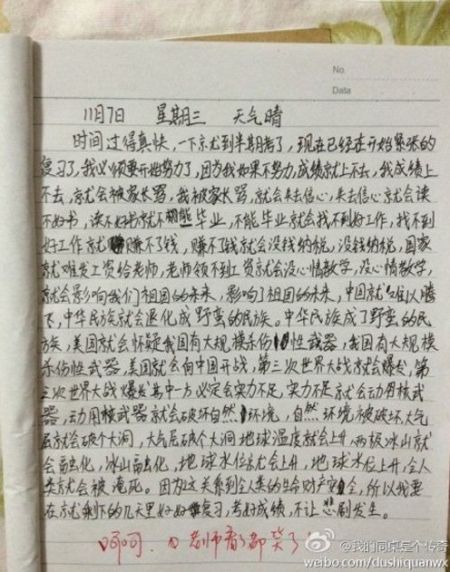 No.
Data
11月7日 星期三 天气晴
时间过得真快,一下就到半期考了,现在已经在开始紧张的
复习了,我必须要开始努力了,因为我如果不努力,成绩就上不去,我成绩上
不去,就会被家长骂,我被家长骂,就会失去信心,失去信心就会读
不好书,读不好书就不能毕业,不能毕业就会找不到好工作,找不到
好工作就赚不了钱,赚不了钱就会没钱纳税,没钱纳税,国家
就难发工资给老师,老师领不到工资就会没心情教学,没心情教学,
就会影响我们祖国的未来,影响了祖国的未来,中国就难以腾
飞,中华民族就会退化成野蛮的民族。中华民族成了野蛮的民
族,美国就会怀疑我国有大规模杀伤性武器,我国有大规
模杀伤性武器,美国就会向中国开战,第三次世界大战就会爆发,第
三次世界大战爆发其中一方必定会实力不足,实力不足就会动用核武
器,动用核武器就会破坏自然环境,自然环境被破坏,大气
层就会破个大洞,大气层破个大洞地球温度就会上升,两极冰山就
会融化,冰山融化,地球水位就会上升,地球水位上升,全人
类就会被淹死。因为这关系到全人类的生命财产安全,所以我要
在就剩下的几天里好好复习,考好成绩,不让悲剧发生。
呵呵,老师看了都笑了
@我的同桌是个传奇
weibo.com/dushiquanwx